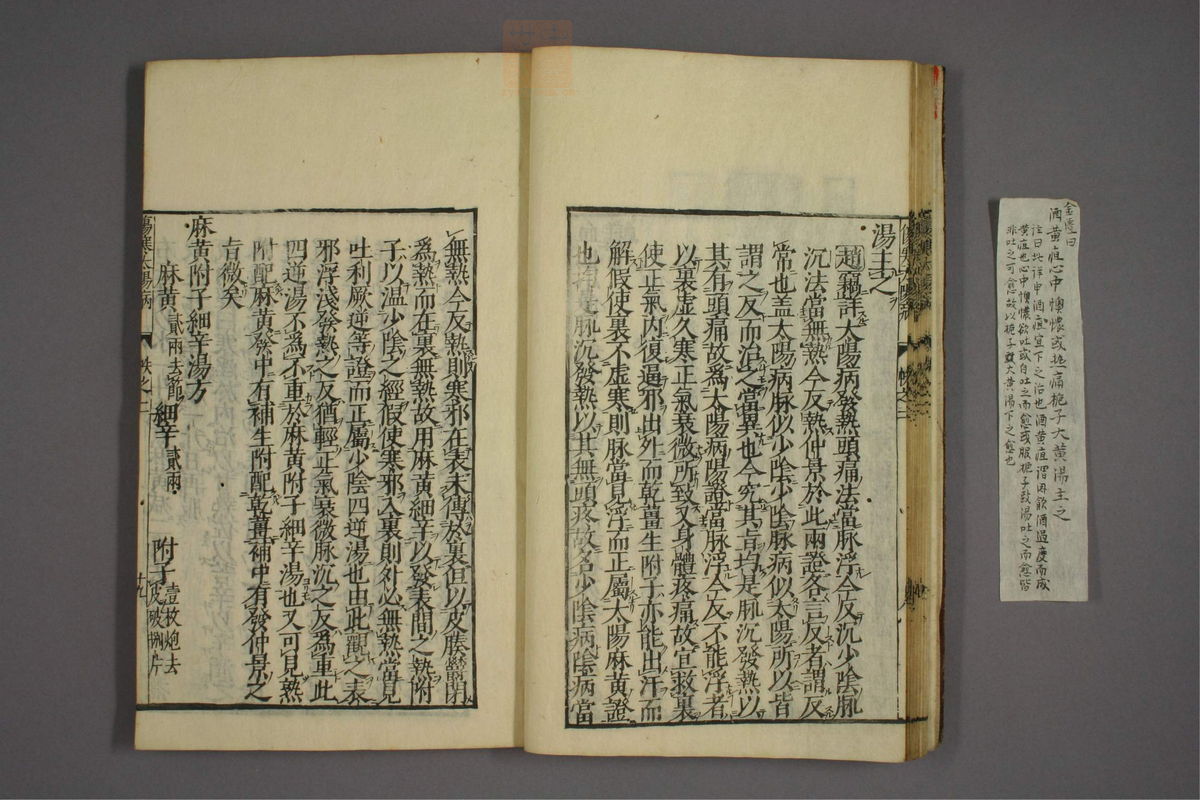 湯主之
趙嗣眞詳太陽病發熱頭痛法當脉浮今反沉少陰脉
沉法當無熱今反熱仲景於此兩證各言反者謂反
常也盖太陽病脉似少陰少陰病似太陽所以皆
謂之反而治之當異也今究其旨均是脉沉發熱以
其有頭痛故爲太陽病陽證當脉浮今反不能浮者
以裏虚久寒正氣衰微所致又身體疼痛故宜救裏
使正氣内復逼邪出外而乾薑生附子亦能出汗而
解假使裏不虚寒則脉當見浮而正屬太陽麻黄證
也均是脉沉發熱以其無頭疼故名少陰病陰病當
無熱今反熱則寒邪在表未傳於裏但以皮膜鬱閉
爲熱而在裏無熱故用麻黄細辛以發表間之熱附
子以温少陰之經假使寒邪入裏則外必無熱當見
吐利厥逆等證而正屬少陰四逆湯也由此觀之表
邪浮淺發熱之反猶輕正氣衰微脉沉之反爲重此
四逆湯不爲不重於麻黄附子細辛湯也又可見熟
附配麻黄發中有補生附配乾薑補中有發仲景之
旨微矣
麻黄附子細辛湯方
麻黄貳兩去 細辛貳兩
附子壹枚炮去皮破捌片
傷寒六陽病
帙之二
十九
金匱曰
酒黄疸心中懊憹或热痛梔子大黄湯主之
注曰此詳申酒疸宜下之治也酒黄疸謂因飲酒過度而成
黄疸也心中懊憹欲吐或自吐之而愈或服梔子豉湯吐之而愈皆
非吐之可愈故以梔子大黄湯下之愈也